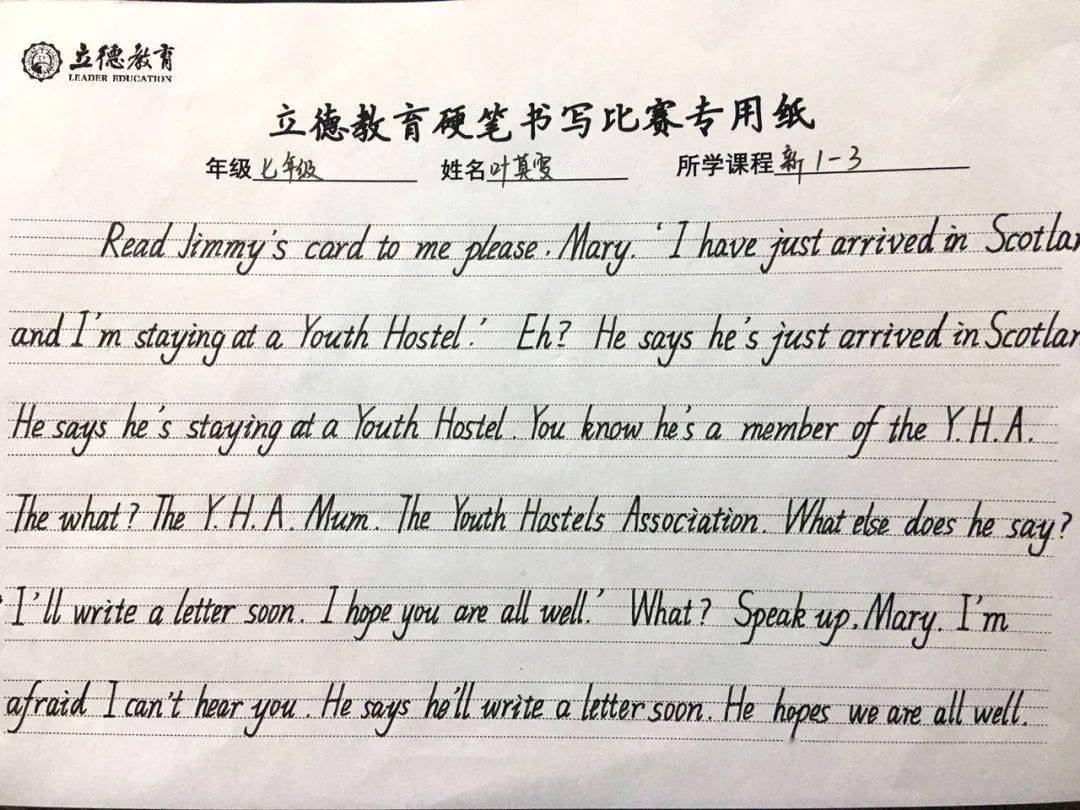 立德教育
LEADER EDUCATION
立德教育硬笔书写比赛专用纸
年级 七年级 姓名 叶莫雯 所学课程 新1-3
Read Jimmy's card to me please, Mary. 'I have just arrived in Scotlan
and I'm staying at a Youth Hostel.' Eh? He says he's just arrived in Scotlan
He says he's staying at a Youth Hostel. You know he's a member of the Y.H.A.
The what? The Y.H.A. Mum. The Youth Hostels Association. What else does he say?
'I'll write a letter soon. I hope you are all well.' What? Speak up, Mary. I'm
afraid I can't hear you. He says he'll write a letter soon. He hopes we are all well.